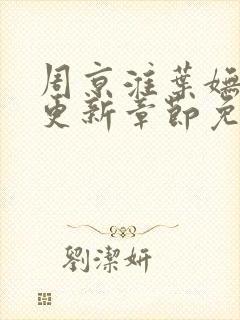 周京淮葉嫵
更新章節免
劉潔妍